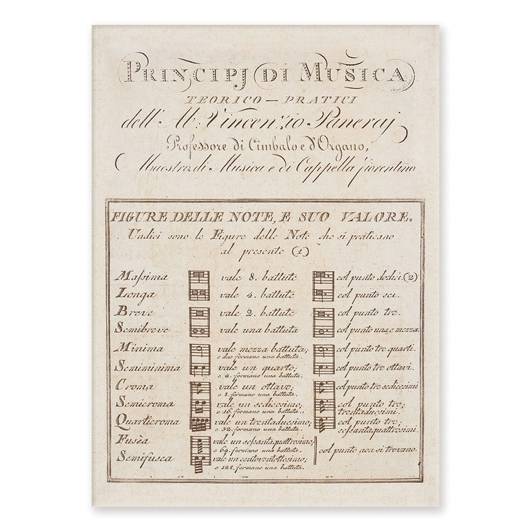 PRINCIPJ DI MUSICA
TEORICO-PRATICI
dell' M. Vincenzio Paneraj
Professore di Cimbalo e d'Organo,
Maestro di Musica e di Cappella fiorentino
FIGURE DELLE NOTE, E SUO VALORE.
Undici sono le Figure delle Note che si praticano
al presente (1)
Massima vale 8. battute col punto dodici (2)
Longa vale 4. battute col punto sei.
Breve vale 2. battute col punto tre.
Semibreve vale una battuta col punto una e mezza.
Minima vale mezza battuta; col punto tre quarti.
e due formano una battuta.
Semiminima vale un quarto; col punto tre ottavi.
e 4. formano una battuta.
Croma vale un ottavo; col punto tre sedicesimi
e 8. formano una battuta.
Semicroma vale un sedicesimo; col punto tre;
e 16. formano una battuta trentaduesimi.
Quarticroma vale un trentaduesimo; col punto tre;
e 32. formano una battuta. sessantaquattresimi.
Fusea vale un sessantaquattresimo;
e 64. formano una battuta.
Semifusea vale un centoventottesimo; col punto non si trovano.
e 128. formano una battuta.